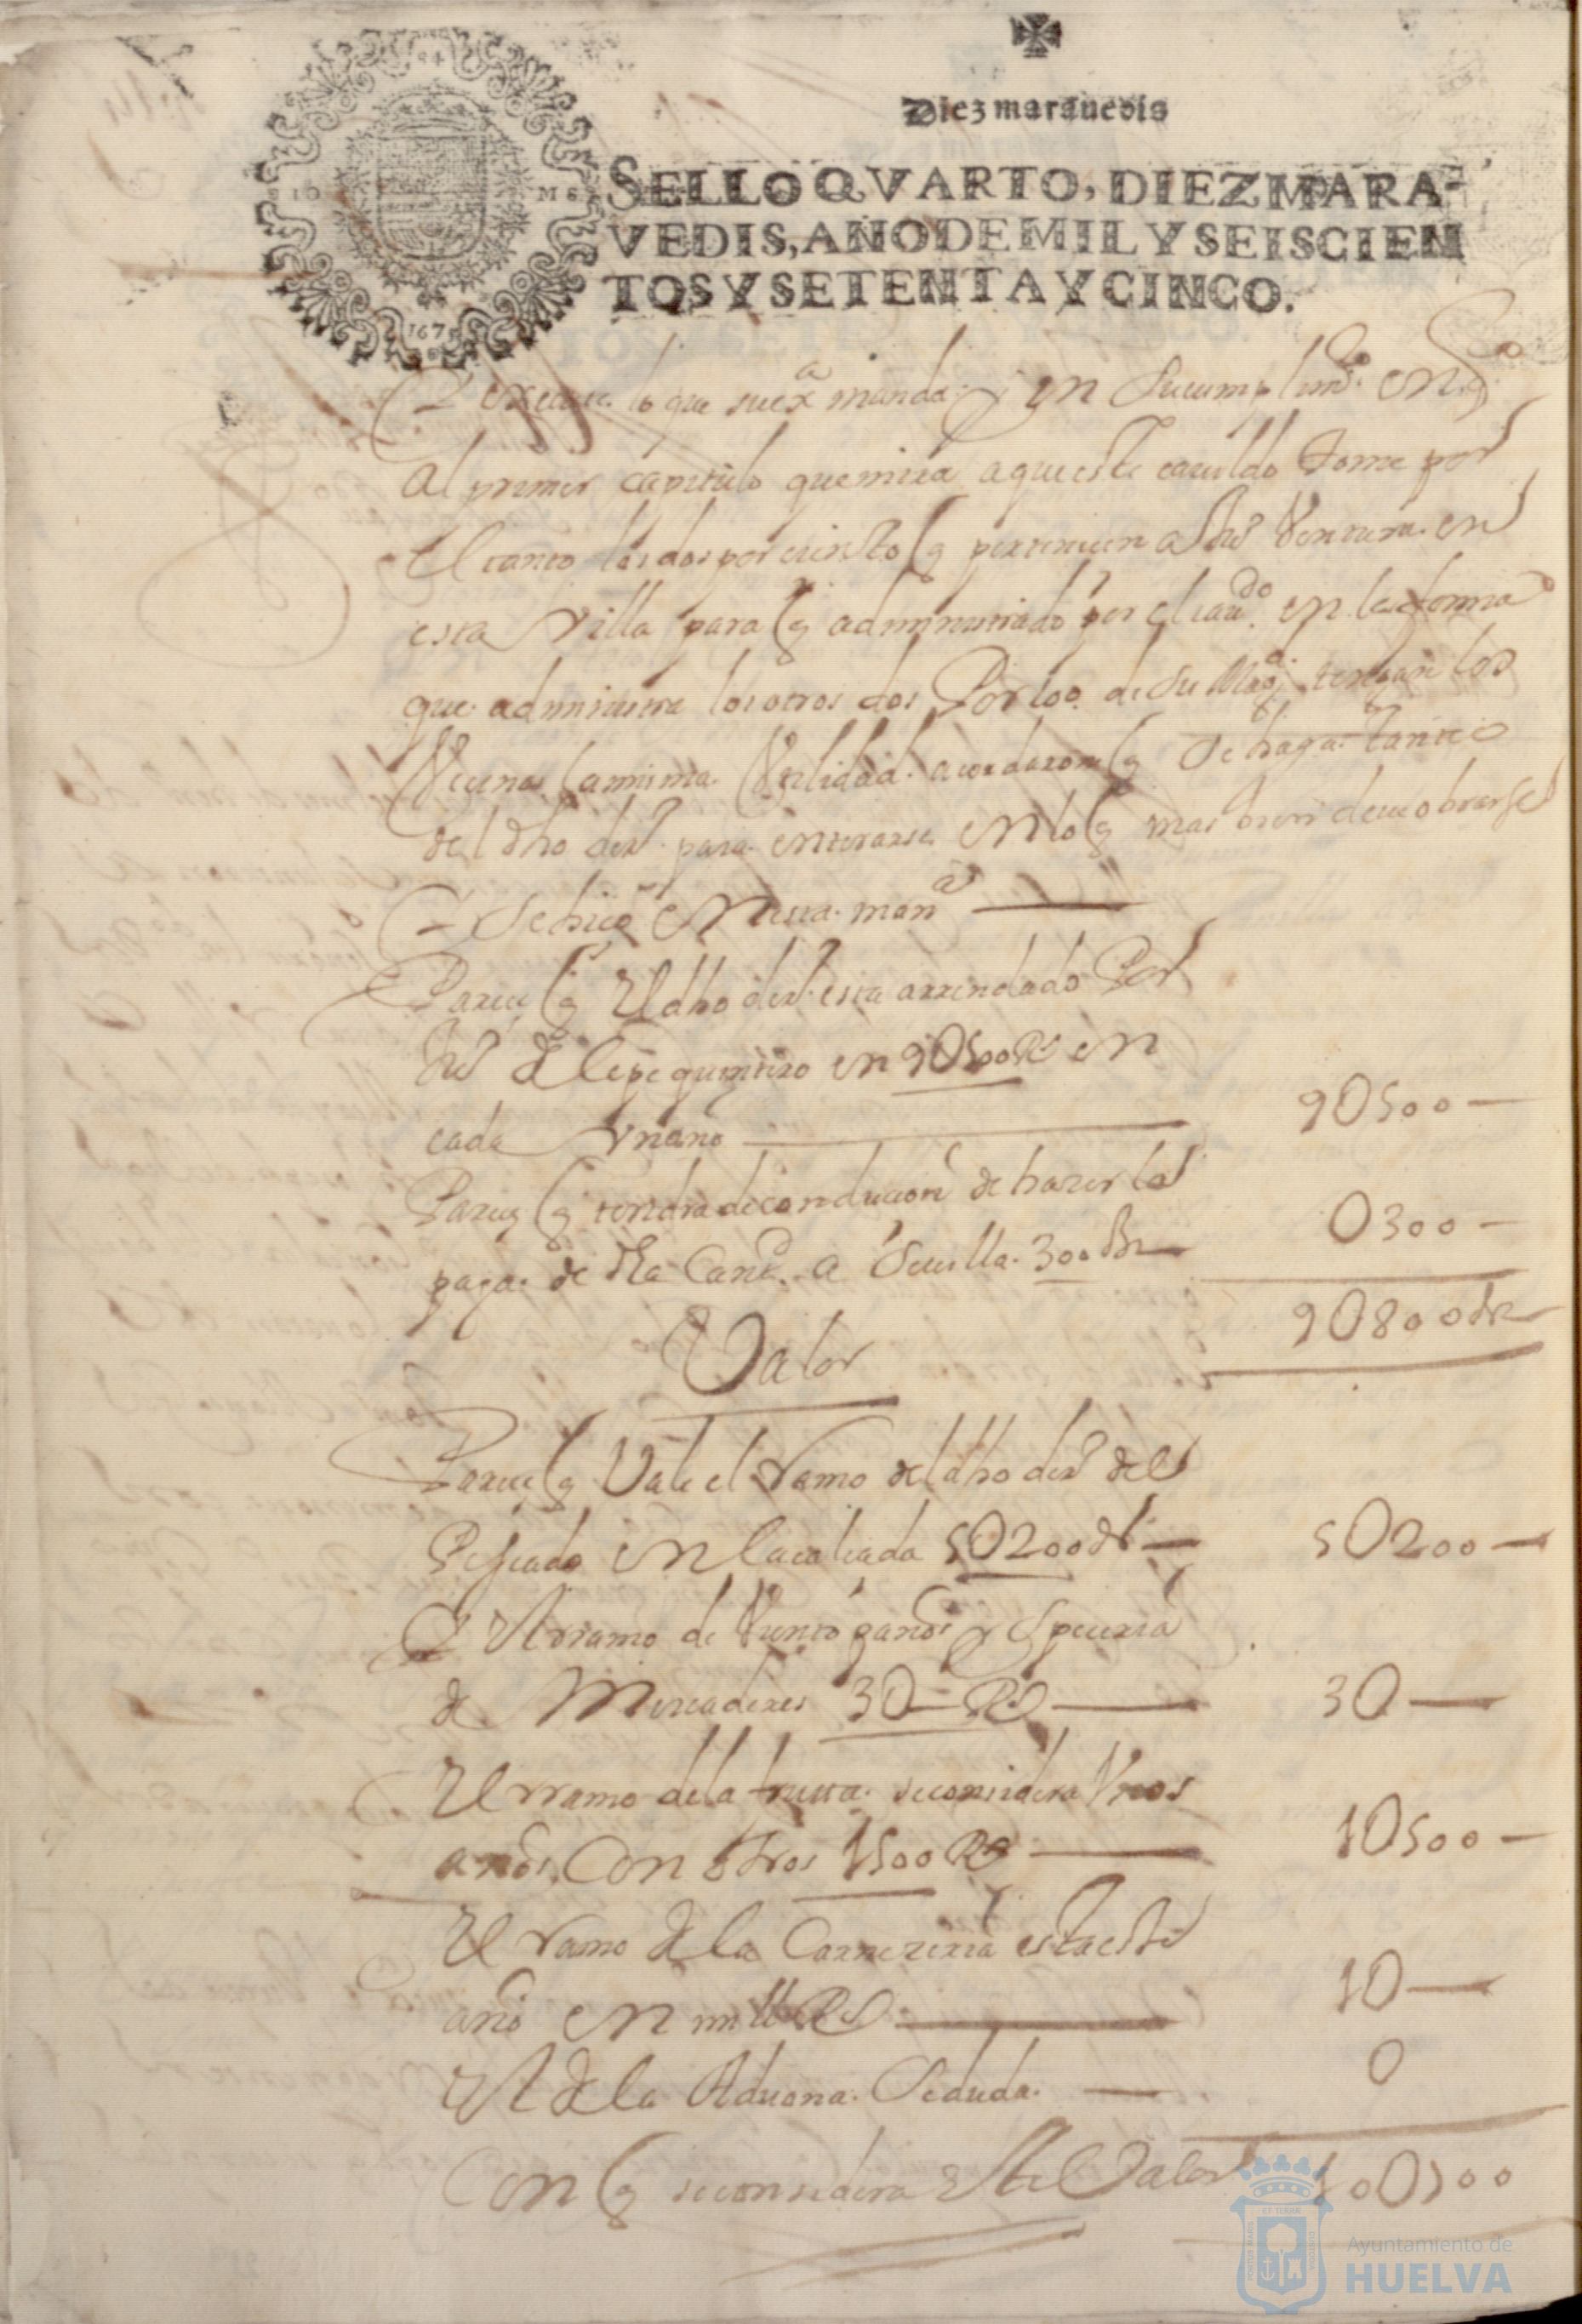 Diez marauedis
SELLO QVARTO, DIEZ MARA-
VEDIS, AÑO DE MIL Y SEISCIEN
TOS Y SETENTA Y CINCO.
1675
lo que su exª manda. y en Su cumplimto. en qto
al primer capitulo que mira a que este cauildo tome por
el tanto los dos por ciento q pertenecen a Ventura. en
esta Villa para q administrado por el caudo. en la forma
que administra los otros dos Por 100. de Su Magd. tengan los
Vecinos la misma Vtilidad. acordaron q Se haga. tanteo
del dho derº. para enterarse en lo q mas bien deue obrarse
Y Se hiço en esta. manª
Parece q El dho derº. esta arrendado Por
Juº de Lepe quintero en 9U500 Rs en
cada Vn año
9U500
Parece q tendra de conducion de hazer las
paga. de dha Cantd. a Seuilla. 300 Rs
U300
9U800 Rs
Valor
Parece q Vale el Ramo del dho derº del
Pescado en la calçada 5U200 Rs
5U200
El rramo de Viento paños y Speceria
de Mercaderes 3U Rs
3U
El rramo de la fruta. se considera Vnos
años. Con otros 1500 Rs
1U500
El ramo de la Carneceria esta este
año en mill Rs
1U
El de la Aduana. Se duda.
U
Con q se considera este Valor
10U700
Ayuntamiento de
HUELVA